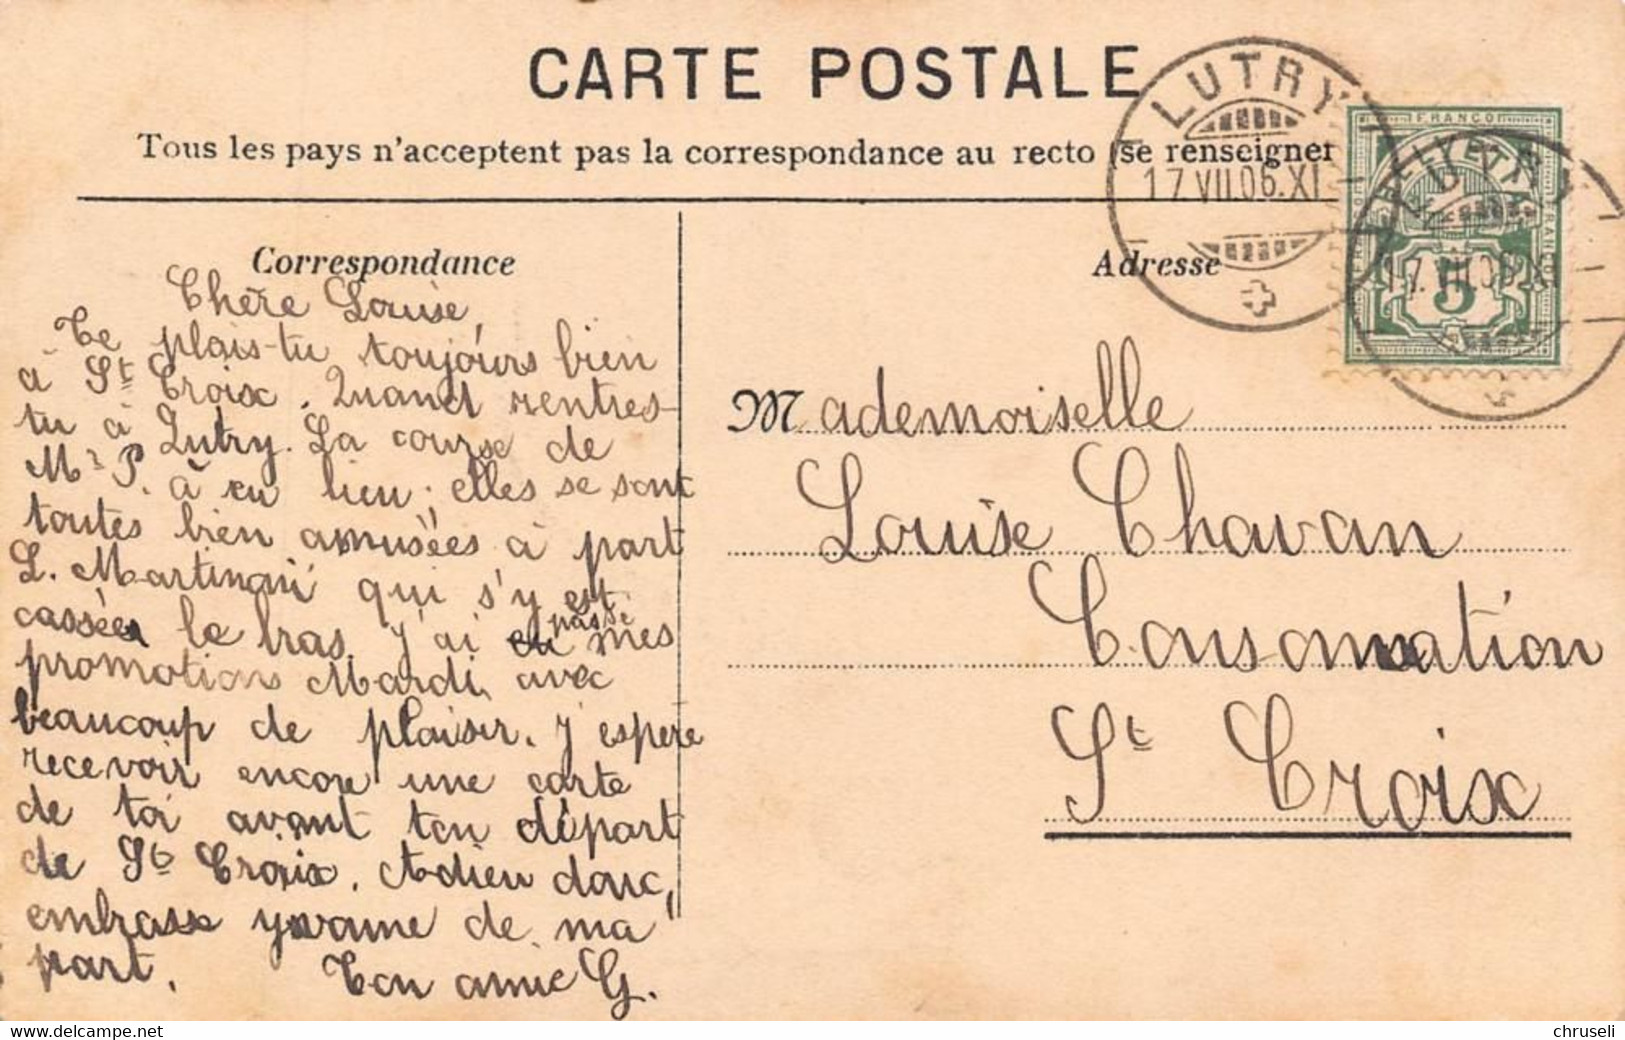 CARTE POSTALE
Tous les pays n'acceptent pas la correspondance au recto (se renseigner
LUTRY
17.VII.06.XI
FRANCO
HELVETIA
FRANCO
FRANCO
5
LUTRY
17.VII.06.XI
Correspondance
Adresse
Chère Louise,
Te plais-tu toujours bien
à St Croix. Quand rentres-
tu à Lutry. La course de
Mr P. à eu lieu; elles se sont
toutes bien amusées à part
L. Martinoni qui s'y est
cassée le bras. J'ai passé mes
promotions Mardi, avec
beaucoup de plaisir. J'espère
recevoir encore une carte
de toi avant ton départ
de St Croix. Adieu donc,
embrasse yvonne de ma
part. Ton amie G.
Mademoiselle
Louise Chavan
Consomation
St Croix
chruseli